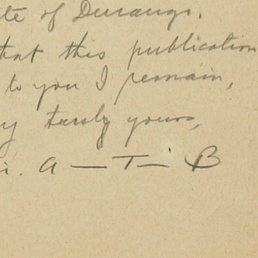 te of Durango.
that this publication
to you I remain,
y truly yours,
. A — T — B